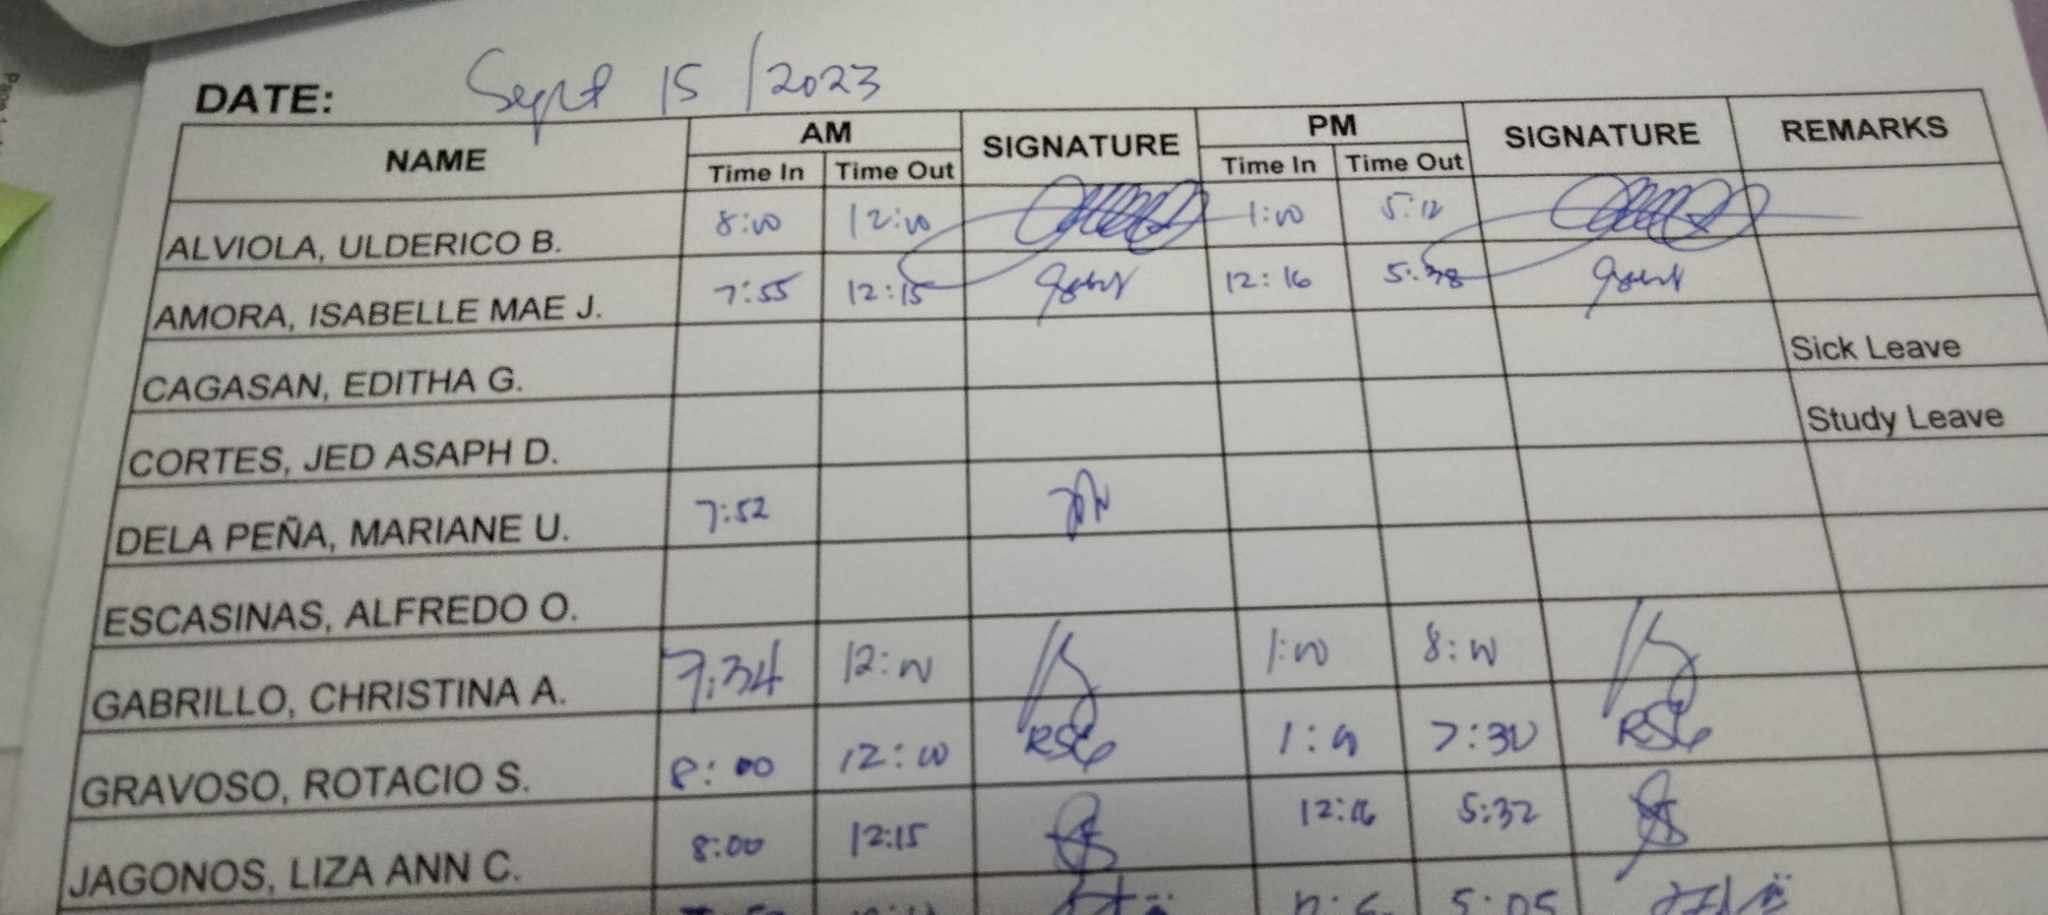 DATE: Sept 15 /2023
NAME AM SIGNATURE PM SIGNATURE REMARKS
Time In Time Out Time In Time Out
ALVIOLA, ULDERICO B. 8:00 12:00 1:00 5:12
AMORA, ISABELLE MAE J. 7:55 12:15 12:16 5:38
CAGASAN, EDITHA G. Sick Leave
CORTES, JED ASAPH D. Study Leave
DELA PEÑA, MARIANE U. 7:52
ESCASINAS, ALFREDO O.
GABRILLO, CHRISTINA A. 7:34 12:00 1:00 8:00
GRAVOSO, ROTACIO S. 8:00 12:00 RSG 7:30 RSG
JAGONOS, LIZA ANN C. 8:00 12:15 12:16 5:32
5:05